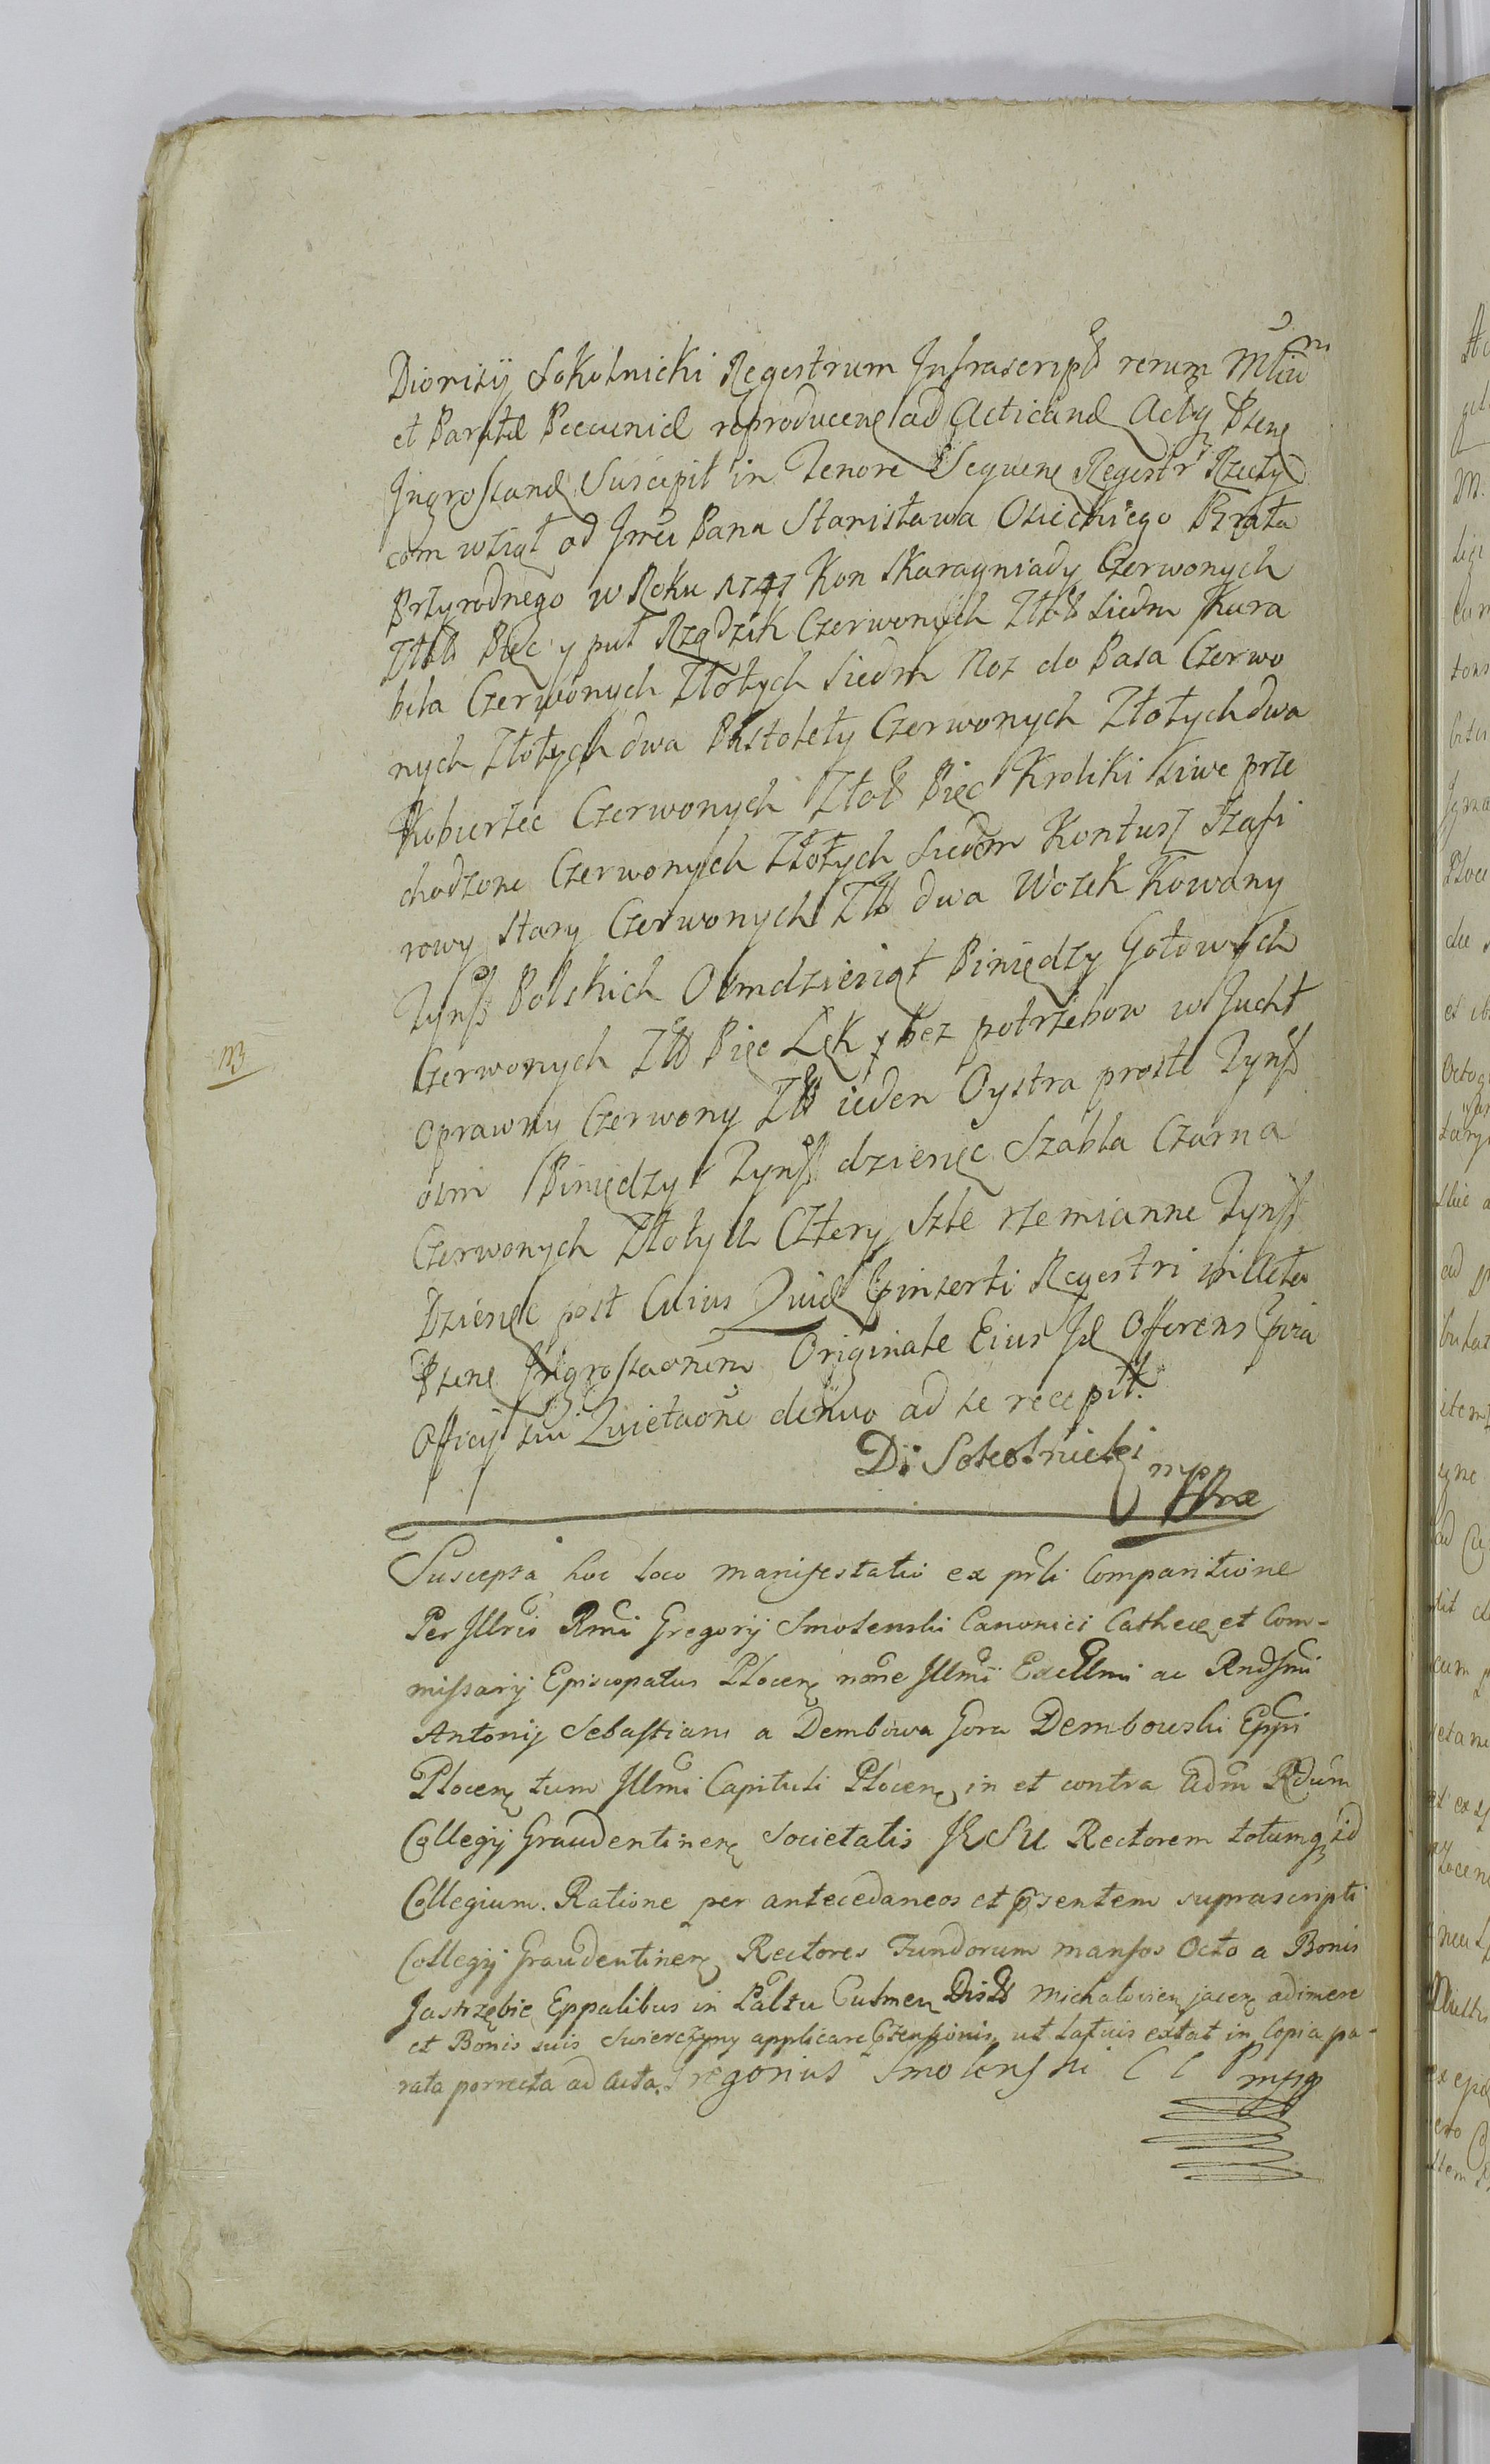 Dionizÿ Sokolnicki Regestrum Infrascript rerum Mliũm
et Paratal Pecuniel reproducens ad Acticand Actis Psens
Ingrossand Suscepit in Tenore Sequens Regestr Rzeczy
com wział od Jmci Pana Stanisława Osieckiego Brata
Przyrodnego w Roku 1747 Kon Skarogniady Czerwonych
Złłt Pięc y puł Rządzik Czerwonych Złłt siedm Kara
bela Czerwonych Złotych Siedm Noz do Pasa Czerwo
nych Złotych dwa Pistolety Czerwonych Złotych dwa
Kobierzec Czerwonych Złot Pięc Kroliki siwe prze
chodzone Czerwonych Złotych Siedem Kontusz Szafi
rowy stary Czerwonych Złł dwa Wozek Kowany
Tynff Polskich Osmdziesiąt Piniędzy Gotowych
Czerwonych Złł Pięc Lęk bez potrzebow w Jucht
oprawny Czerwony Złł ieden Oystra proste Tynff
osm Piniędzy Tynff dziesięc Szabla Czarna
Czerwonych Złotych Cztery Szle rzemianne Tynff
Dziesięc post Cuius Quid Pinserti Regestri in Acta
Psens Ingrossaonem Originale Eius Jd Offerens Pvia
Officÿ sui Quietaone denuo ad se recepit.
D: Sokolnicki mp
Suscepta hoc loco manifestatio ex prli Comparitione
Per Illris Rmi Gregorij Smolenski Canonici Cathed et Com-
missarij Episcopatus Plocens noñe Illmi Excellmi ac Rndsmi
Antonij Sebastiani a Dembowa Gora Dembowski Eppi
Plocens tum Illmi Capituli Plocens in et contra Adm Rdum
Collegij Graudentinens Societatis JESU Rectorem totumq id
Collegium. Ratione per antecedaneos et psentem suprascripti
Collegij Graudentinens Rectores Fundorum mansos Octo a Bonis
Jastrzębie Eppalibus in Paltu Culmen Distt Michalovien jacen adimere
et Bonis suis Swierczyny applicare Ptensionis, ut latius extat in Copia pa-
rata porrecta ad Acta. Gregorius Smolenski C C P mpp